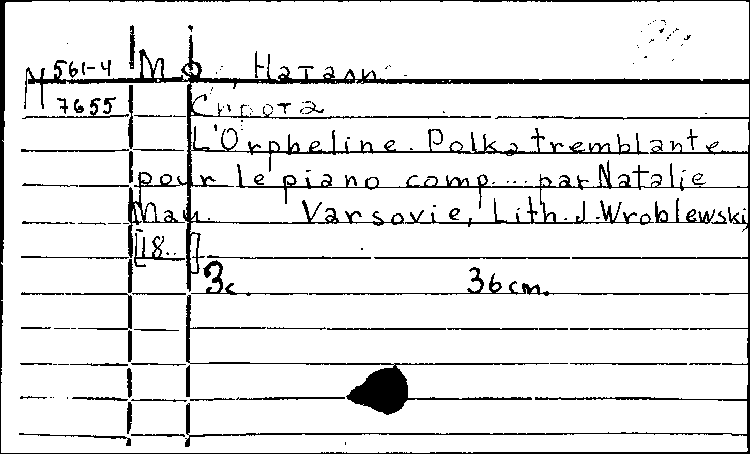 М 561-4
7655
М о , Натали.
Сирота
L'Orpheline. Polka tremblante
pour le piano comp... par Natalie
May. Varsovie, Lith. J. Wroblewski,
[18..]
3с. 36 cm.